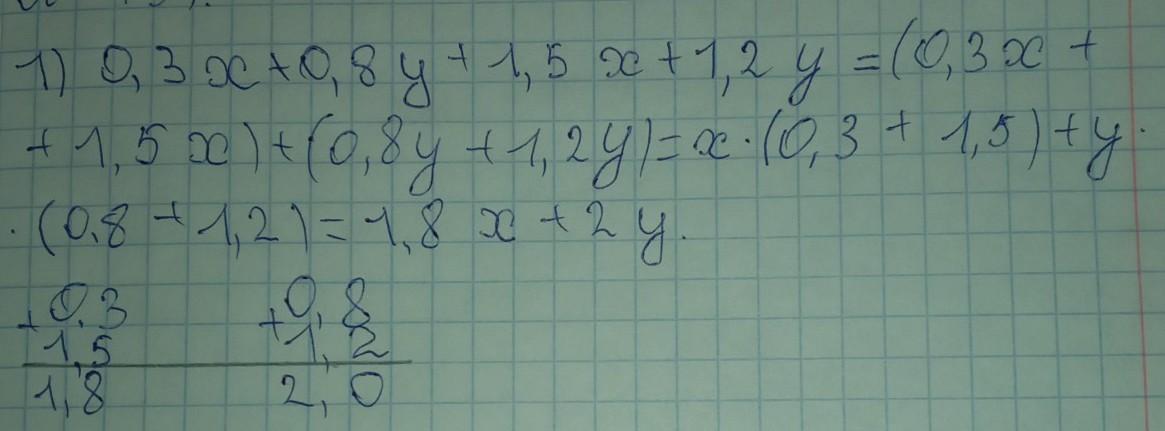 1) 0,3x+0,8y+1,5x+1,2y=(0,3x+
+1,5x)+(0,8y+1,2y)=x·(0,3+1,5)+y·
·(0,8+1,2)=1,8x+2y.
+0,3 +0,8
1,5 1,2
1,8 2,0